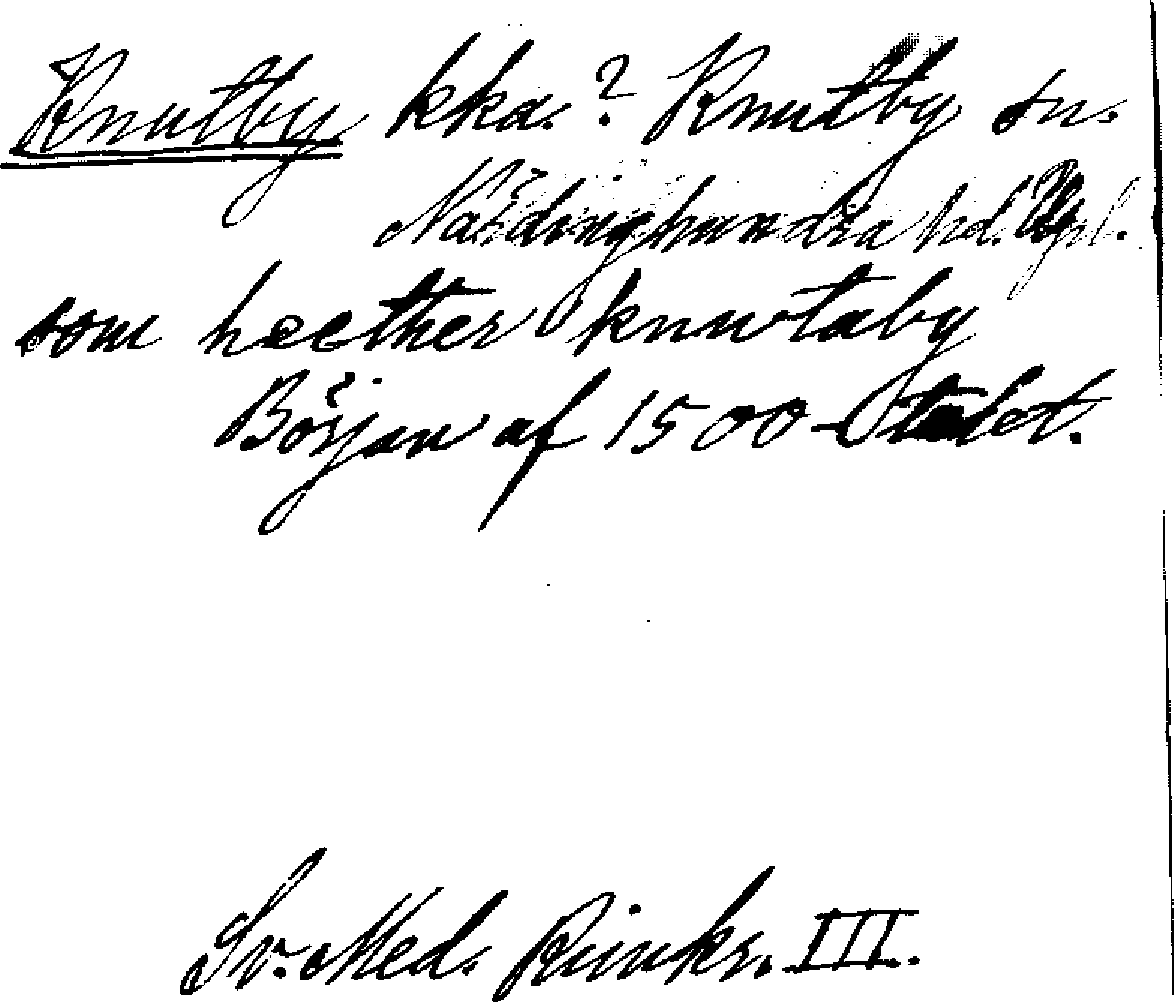 Knutby kka.? Knutby sn.
Närdinghundra hd. Upl.
som heether knwtaby
Början af 1500-talet.
Sv. Med. Rimkr. III.